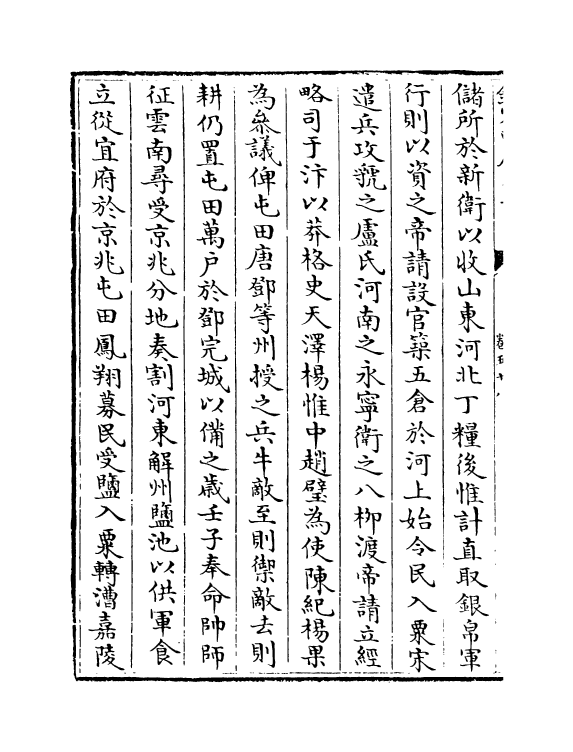 儲所於新衛以收山東河北丁糧後惟計直取銀帛軍
行則以資之帝請設官築五倉於河上始令民入粟宋
遣兵攻虢之盧氏河南之永寧衛之八栁渡帝請立經
略司于汴以莽格史天澤楊惟中趙璧為使陳紀楊果
為叅議俾屯田唐鄧等州授之兵牛敵至則禦敵去則
耕仍置屯田萬户於鄧完城以備之歲壬子奉命帥師
征雲南尋受京兆分地奏割河東解州鹽池以供軍食
立從宜府於京兆屯田鳳翔募民受鹽入粟轉漕嘉陵